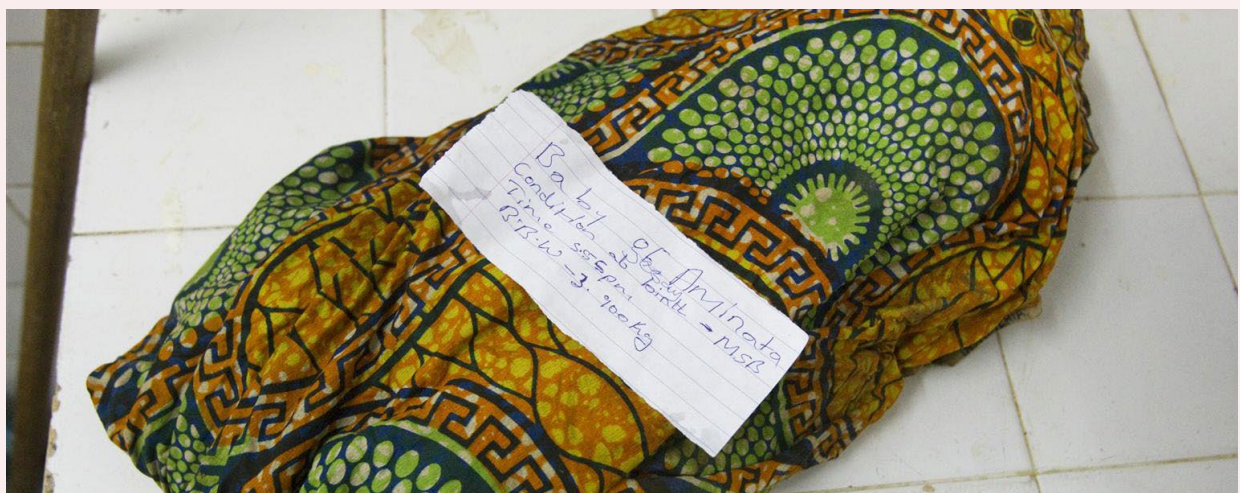 Baby of Aminata
Condition at birth - MSB
Time 5:55pm
B.B.W - 3.900kg